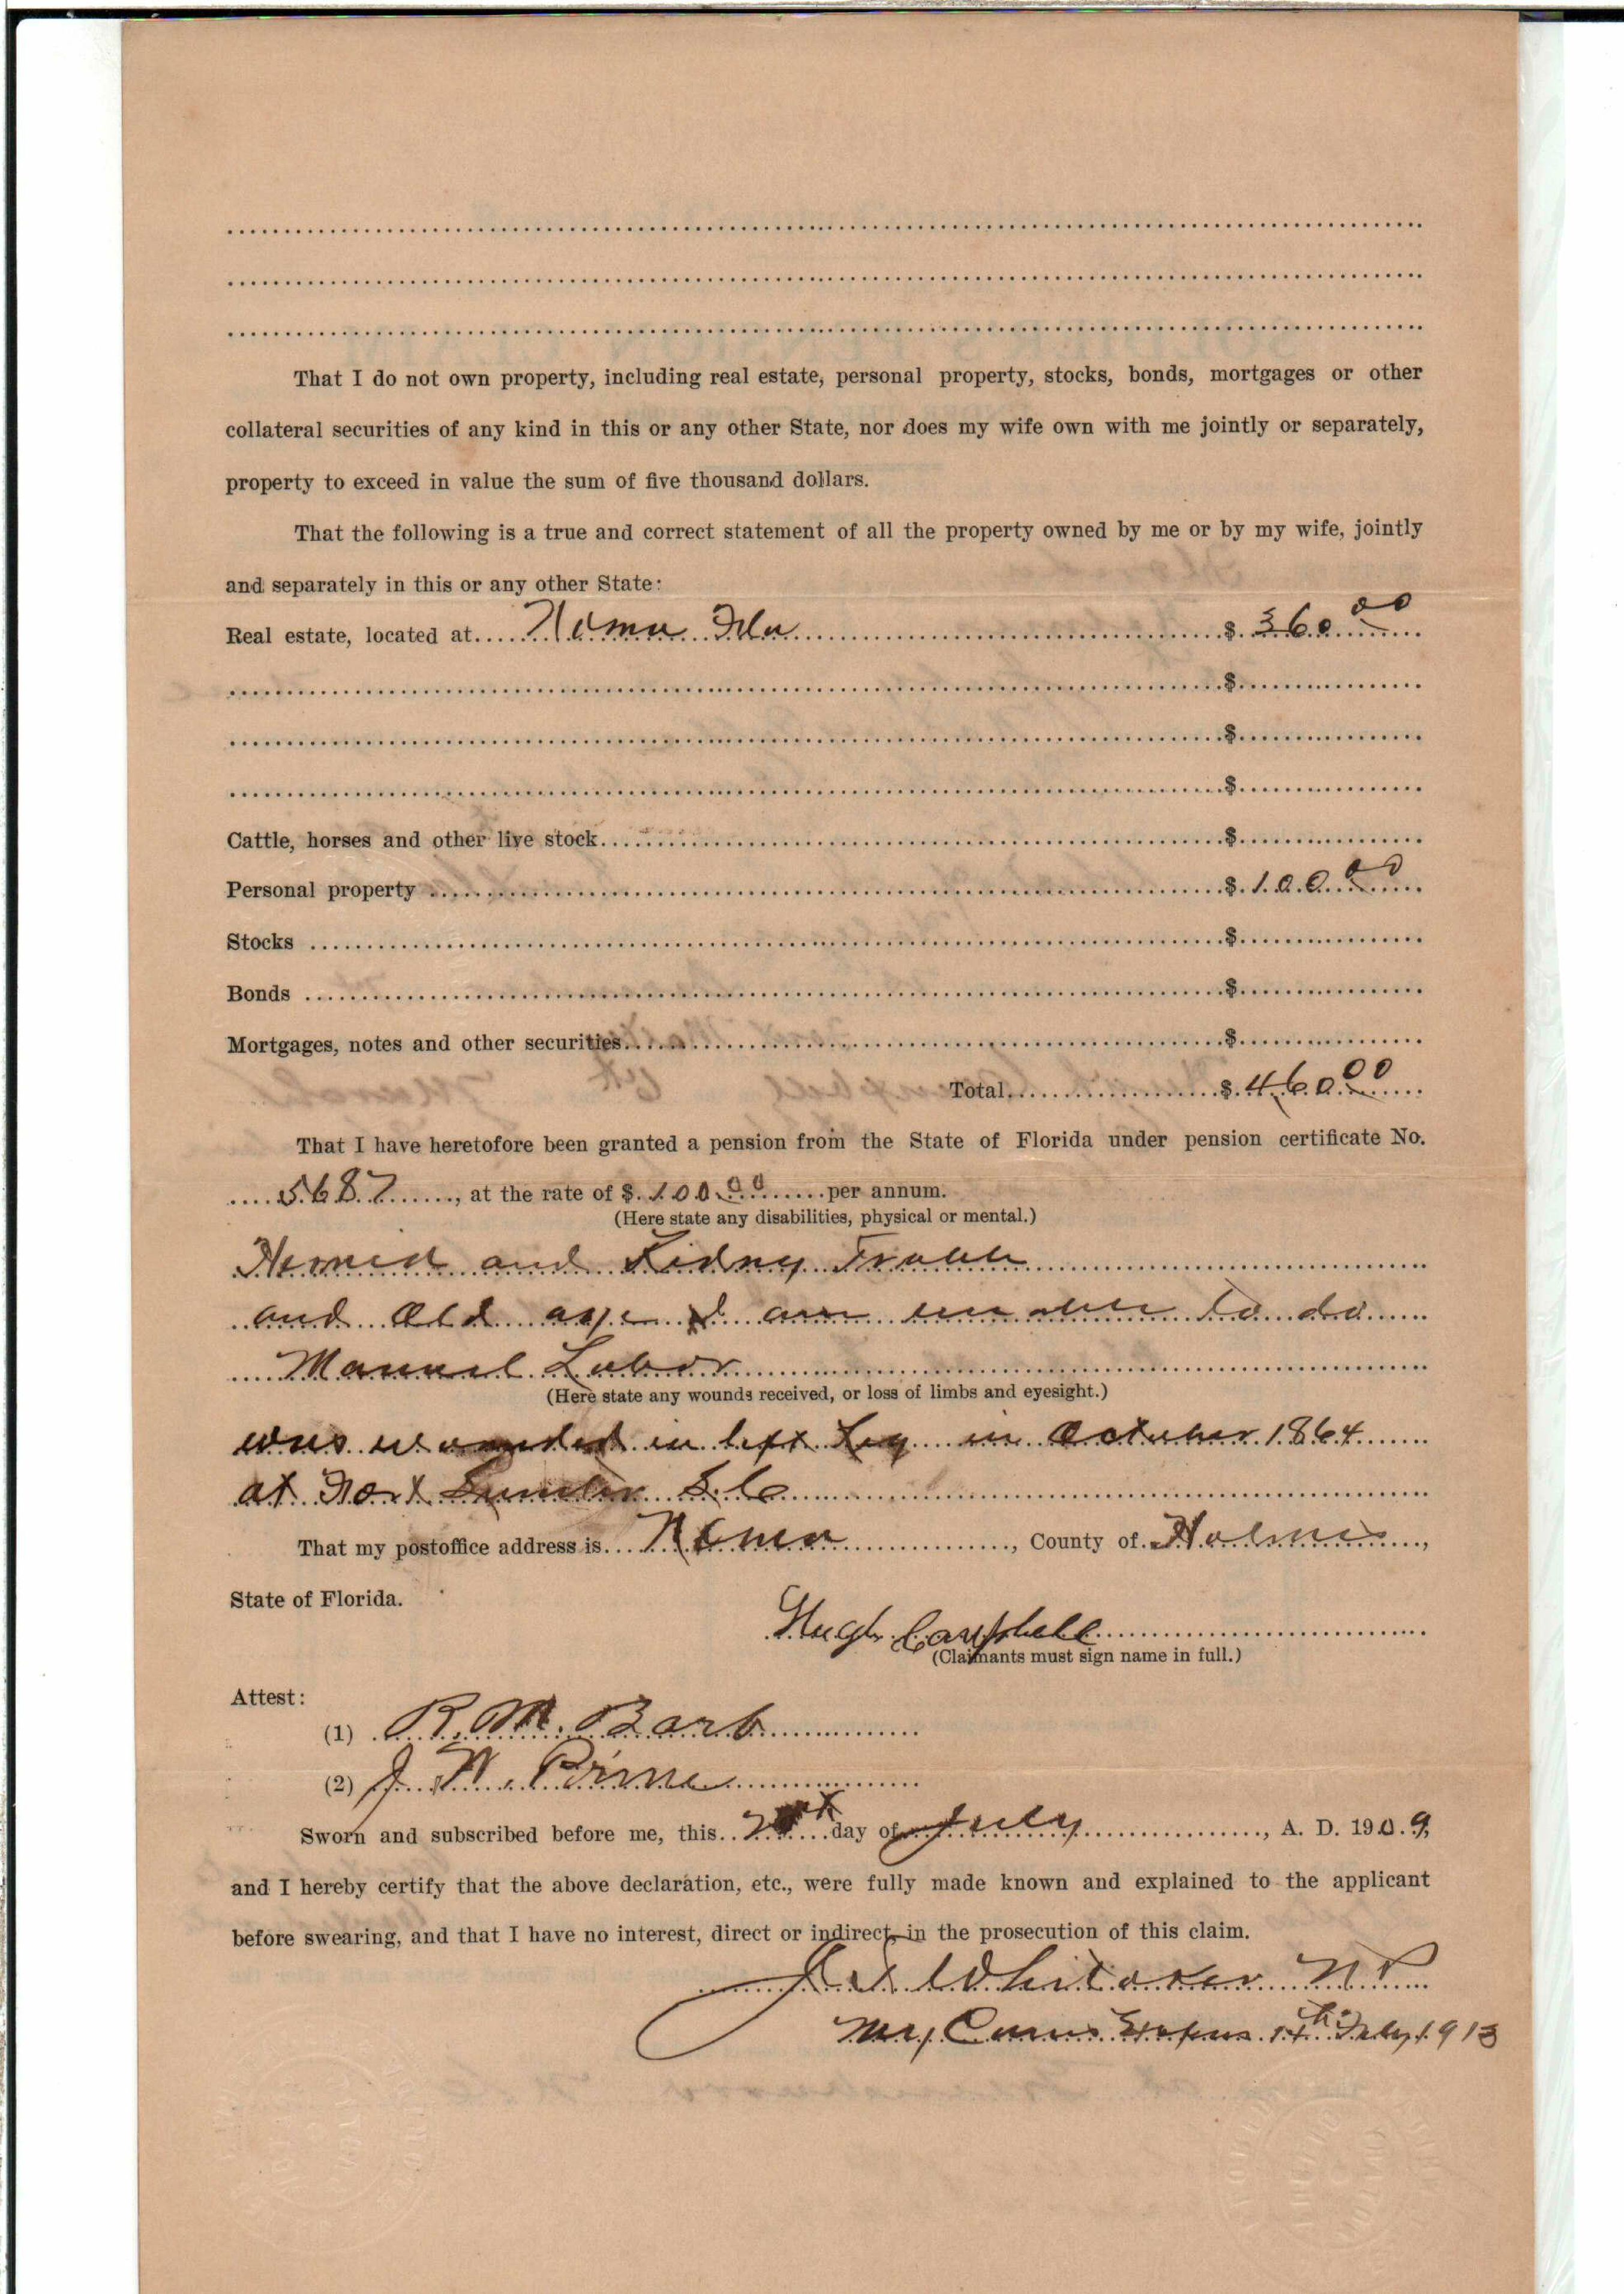 That I do not own property, including real estate, personal property, stocks, bonds, mortgages or other
collateral securities of any kind in this or any other State, nor does my wife own with me jointly or separately,
property to exceed in value the sum of five thousand dollars.
That the following is a true and correct statement of all the property owned by me or by my wife, jointly
and separately in this or any other State:
Real estate, located at Noma Fla $ 360 00
$
$
$
Cattle, horses and other live stock $
Personal property $ 100 00
Stocks $
Bonds $
Mortgages, notes and other securities $
Total $ 460 00
That I have heretofore been granted a pension from the State of Florida under pension certificate No.
5687, at the rate of $ 100 00 per annum.
(Here state any disabilities, physical or mental.)
and Kidny
and Old age I am unable to do
Manuel Labor
(Here state any wounds received, or loss of limbs and eyesight.)
was wounded in left Leg in October 1864
at Fort Sumter S.C
That my postoffice address is Noma, County of Holmes,
State of Florida.
Hugh Campbell
(Claimants must sign name in full.)
Attest:
(1) R. M. Barb
(2) J. W.
Sworn and subscribed before me, this day of July, A. D. 1909,
and I hereby certify that the above declaration, etc., were fully made known and explained to the applicant
before swearing, and that I have no interest, direct or indirect, in the prosecution of this claim.
Whitaker N P
My Comis Expires July 1913